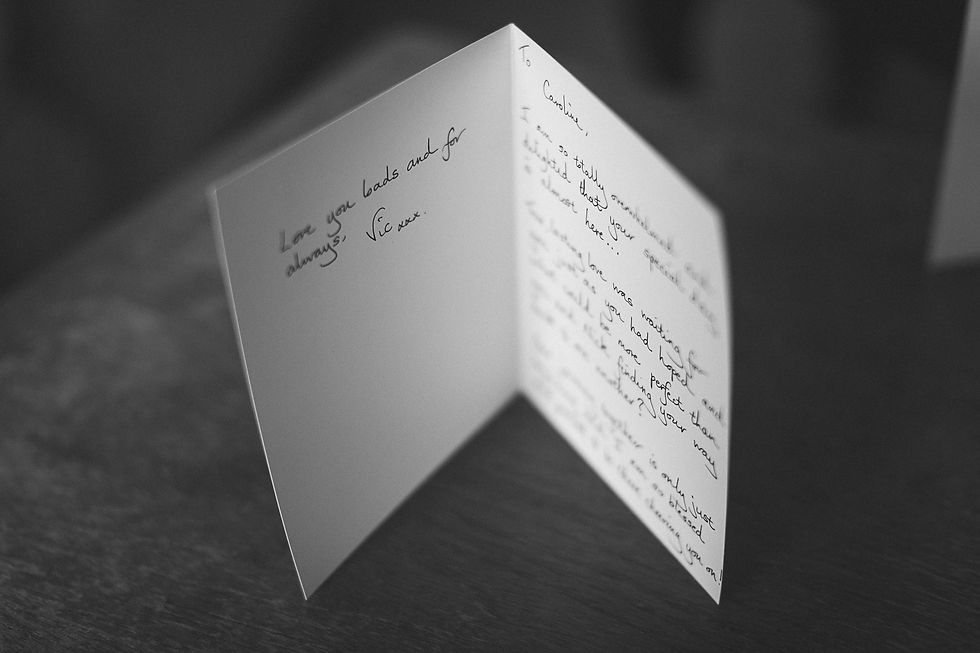 To
Caroline,
I am so totally overwhelmed and
delighted that your special day
is almost here...
True lasting love was waiting for
you just as you had hoped and
what could be more perfect than
you and Nick finding your way
to one another?
together is only just
I am so blessed
to be cheering you on!
Love you loads and for
always. Vic xxx.